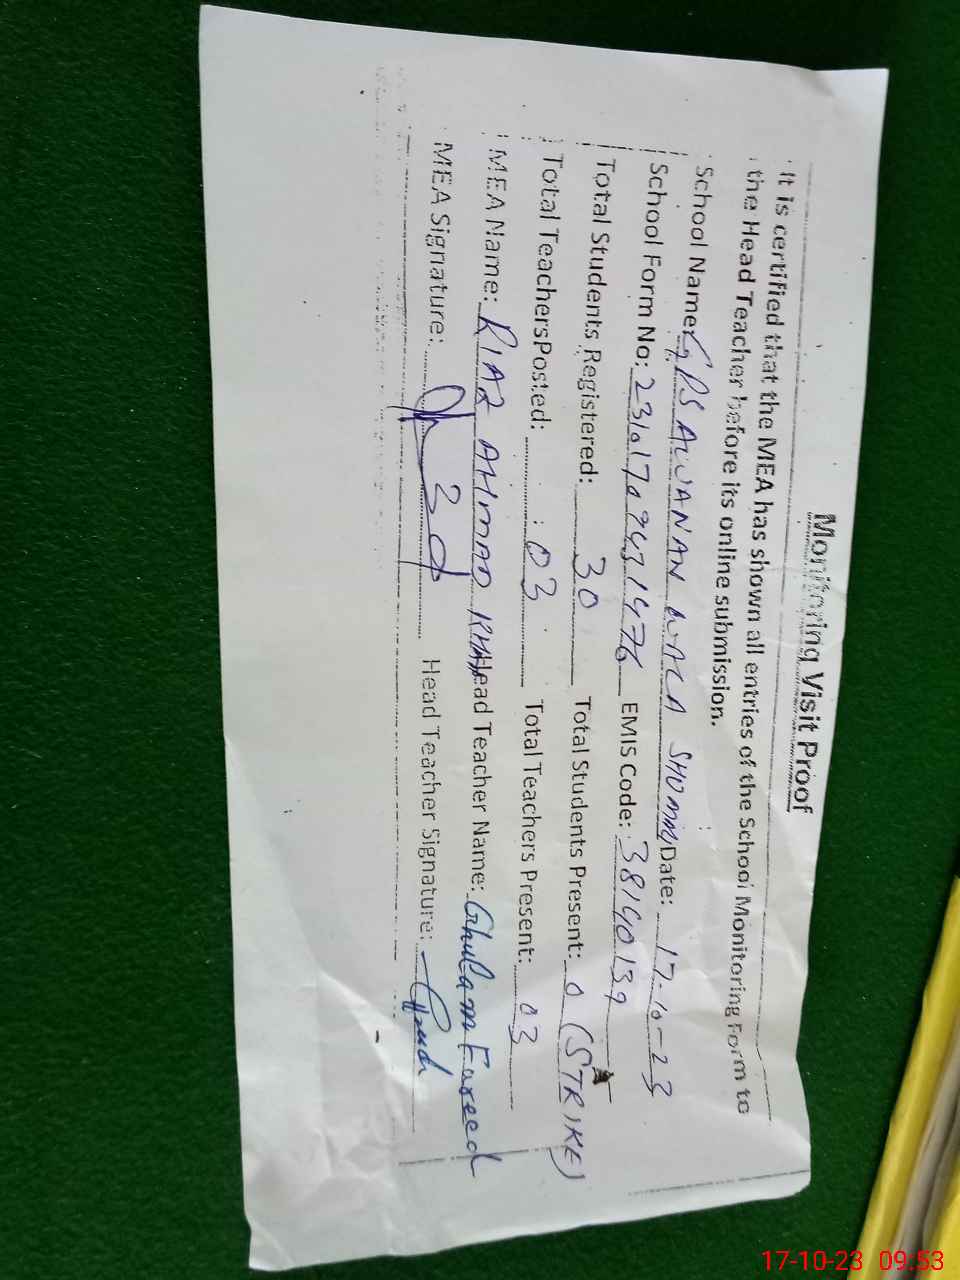 Monitoring Visit Proof
It is certified that the MEA has shown all entries of the School Monitoring Form to
the Head Teacher before its online submission.
School Name: GPS AWANAN WALA SHUMALI Date: 17-10-23
School Form No: 23101709431476 EMIS Code: 38140139
Total Students Registered: 30 Total Students Present: 0 (STRIKE)
Total Teachers Posted: 03 Total Teachers Present: 03
MEA Name: RIAZ AHMAD KHAN Head Teacher Name: Ghulam Fareed
MEA Signature: Head Teacher Signature:
17-10-23 09:53